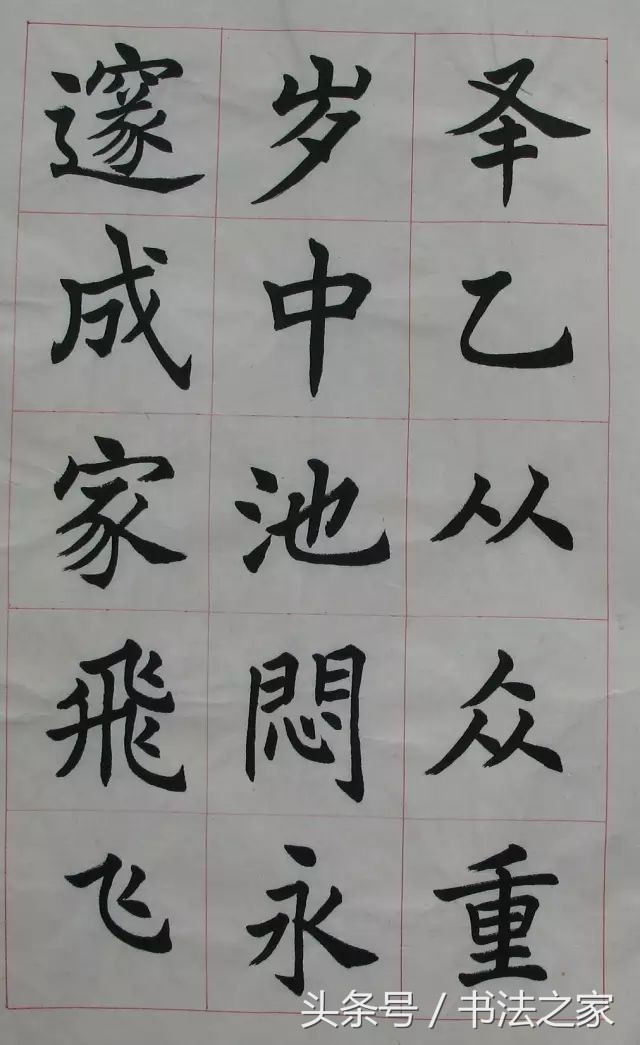 𠬤乙从众重
岁中池悶永
邃成家飛飞
头条号 / 书法之家